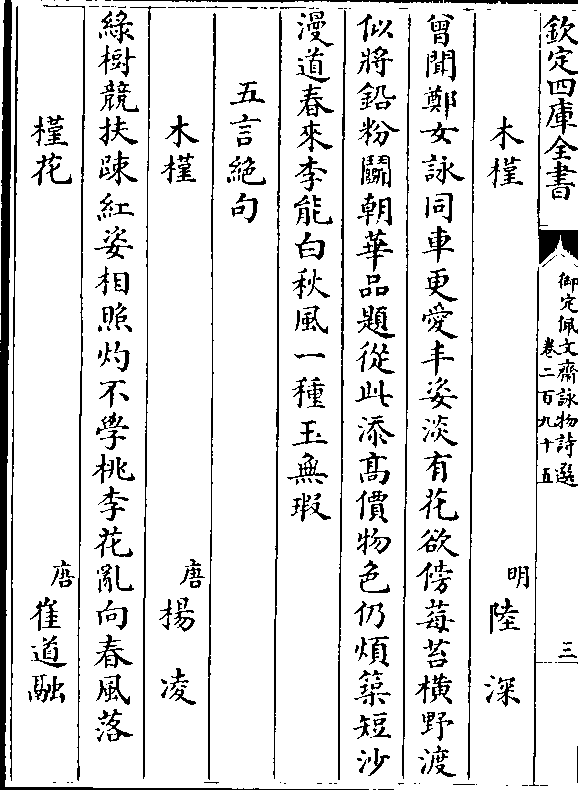 欽定四庫全書
御定佩文齋詠物詩選
卷二百九十五
三
木槿
明
陸深
曾聞鄭女詠同車更愛丰姿淡有花欲傍莓苔橫野渡
似將鉛粉鬬朝華品題從此添高價物色仍煩築短沙
漫道春來李能白秋風一種玉無瑕
五言絶句
木槿
唐
揚凌
綠樹競扶踈紅姿相照灼不學桃李花亂向春風落
槿花
唐
崔道融